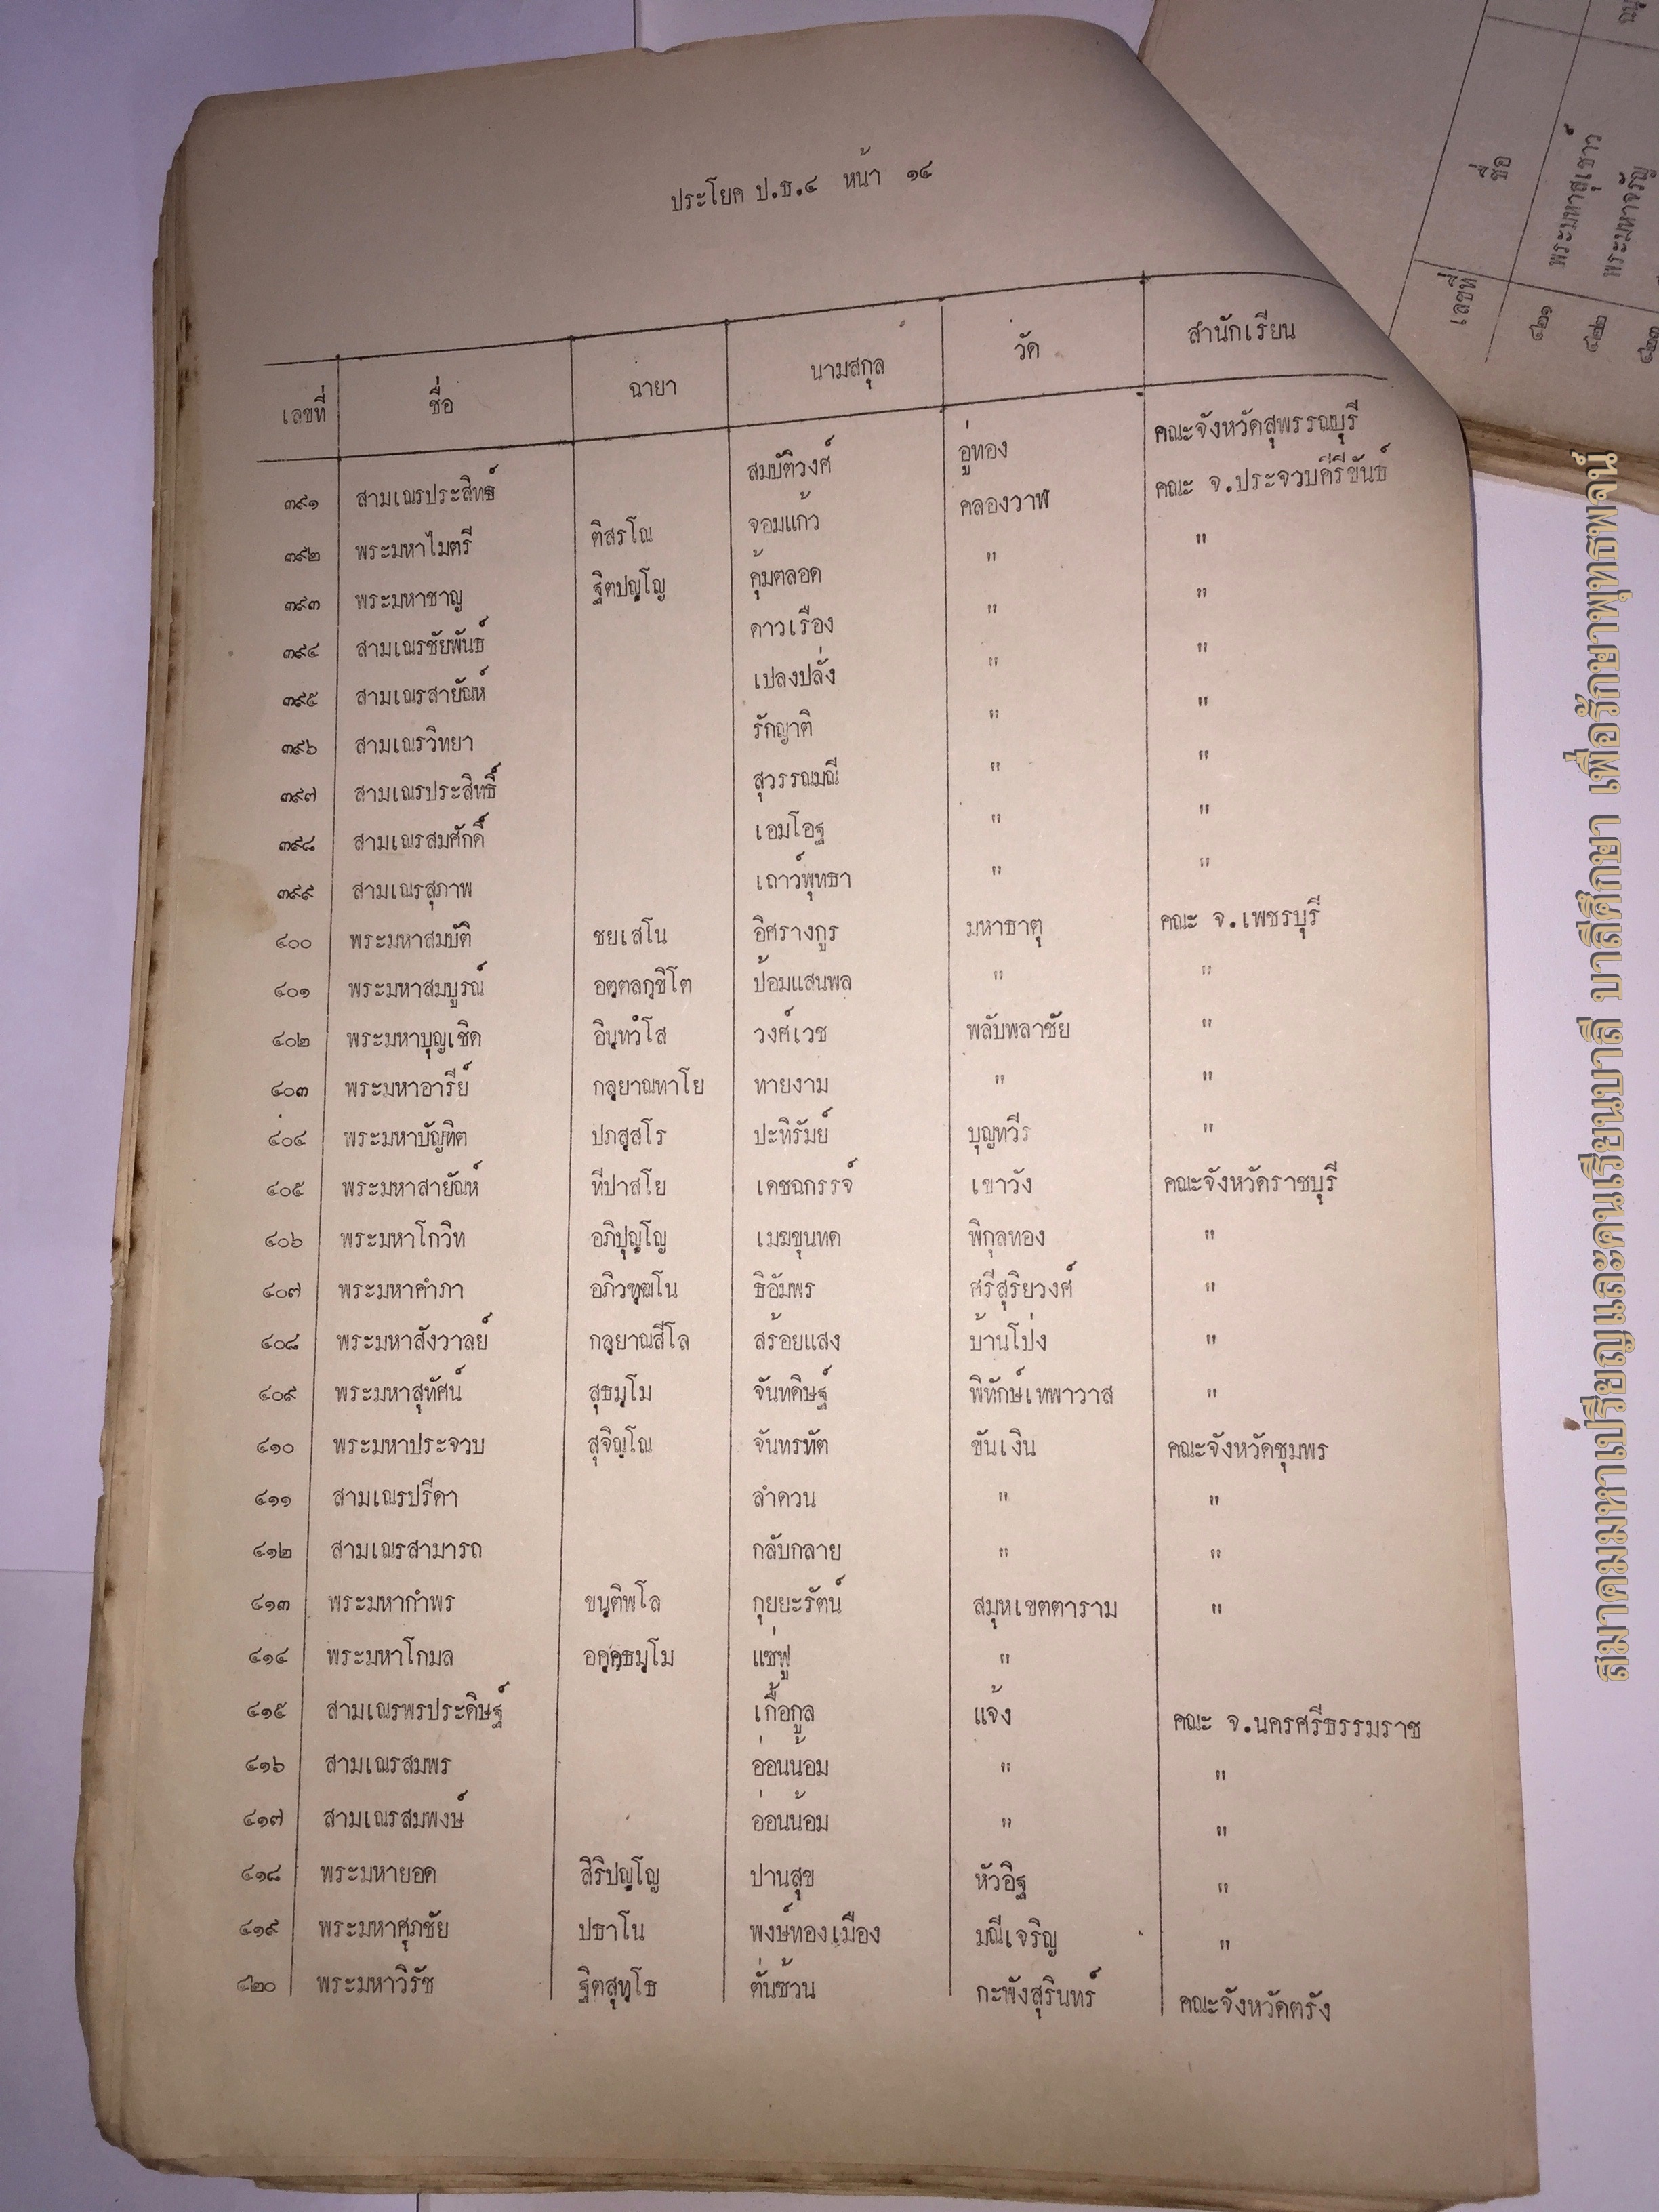 ประโยค ป.ธ.๔ หน้า ๑๔
เลขที่ ชื่อ ฉายา นามสกุล วัด สำนักเรียน
๓๙๑ สามเณรประสิทธิ์ สมบัติวงศ์ อู่ทอง คณะจังหวัดสุพรรณบุรี
๓๙๒ พระมหาไมตรี ติสรโณ จอมแก้ว คลองวาฬ คณะ จ.ประจวบคีรีขันธ์
๓๙๓ พระมหาชาญ ฐิตปญฺโญ คุ้มตลอด " "
๓๙๔ สามเณรชัยพันธ์ ดาวเรือง " "
๓๙๕ สามเณรสายัณห์ เปลงปลั่ง " "
๓๙๖ สามเณรวิทยา รักญาติ " "
๓๙๗ สามเณรประสิทธิ์ สุวรรณมณี " "
๓๙๘ สามเณรสมศักดิ์ เอมโอฐ " "
๓๙๙ สามเณรสุภาพ เถาว์พุทธา " "
๔๐๐ พระมหาสมบัติ ชยเสโน อิศรางกูร มหาธาตุ คณะ จ.เพชรบุรี
๔๐๑ พระมหาสมบูรณ์ อตฺตลกฺขิโต ป้อมแสนพล " "
๔๐๒ พระมหาบุญเชิด อินฺทวํโส วงศ์เวช พลับพลาชัย "
๔๐๓ พระมหาอารีย์ กลฺยาณทาโย ทายงาม " "
๔๐๔ พระมหาบัญฑิต ปภสฺสโร ปะทิรัมย์ บุญทวีร "
๔๐๕ พระมหาสายัณห์ ทีปาสโย เดชฉกรรจ์ เขาวัง คณะจังหวัดราชบุรี
๔๐๖ พระมหาโกวิท อภิปุญฺโญ เมฆขุนทด พิกุลทอง "
๔๐๗ พระมหาคำภา อภิวฑฺฒโน ธิอัมพร ศรีสุริยวงศ์ "
๔๐๘ พระมหาสังวาลย์ กลฺยาณสีโล สร้อยแสง บ้านโป่ง "
๔๐๙ พระมหาสุทัศน์ สุธมฺโม จันทดิษฐ์ พิทักษ์เทพาวาส "
๔๑๐ พระมหาประจวบ สุจิณฺโณ จันทรทัต ขันเงิน คณะจังหวัดชุมพร
๔๑๑ สามเณรปรีดา ลำดวน " "
๔๑๒ สามเณรสามารถ กลับกลาย " "
๔๑๓ พระมหากำพร ขนฺติพโล กุยยะรัตน์ สมุหเขตตาราม "
๔๑๔ พระมหาโกมล อคฺคธมฺโม แซ่ฟู "
๔๑๕ สามเณรพรประดิษฐ์ เกื้อกูล แจ้ง คณะ จ.นครศรีธรรมราช
๔๑๖ สามเณรสมพร อ่อนน้อม " "
๔๑๗ สามเณรสมพงษ์ อ่อนน้อม " "
๔๑๘ พระมหายอด สิริปญฺโญ ปานสุข หัวอิฐ "
๔๑๙ พระมหาศุภชัย ปธาโน พงษ์ทองเมือง มณีเจริญ "
๔๒๐ พระมหาวิรัช ฐิตสุทฺโธ ตั่นช้วน กะพังสุรินทร์ คณะจังหวัดตรัง
เลขที่ ชื่อ
๔๒๑ พระมหาสุเชาว์
๔๒๒ พระมหาจรัญ
๔๒๓
สมาคมมหาเปรียญและคนเรียนบาลี บาลีศึกษา เพื่อรักษาพุทธพจน์